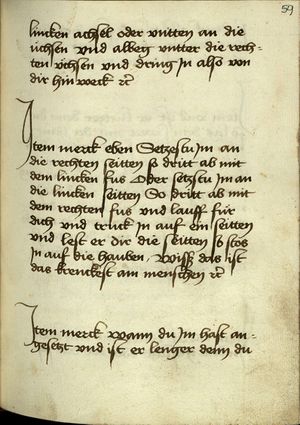 59
lincken achsel oder mitten an die
üchsen vnd alber vntter die rech-
ten v̈chsen vnd dring In also von
dir hin weck rc
Item merck eben Setzestu Im an
die rechten seitten so dritt ab mit
dem lincken fus Oder setzstu im an
die lincken seitten So dritt ab mit
dem rechten fus vnd lauff für
dich vnd truck in auf ein seitten
vnd lest er dir die seitten so stos
in auf die hauben, wiss das ist
das krenckest am menschen rc
Item merck wann du Im hast an-
gesetzt vnd ist er lenger denn du